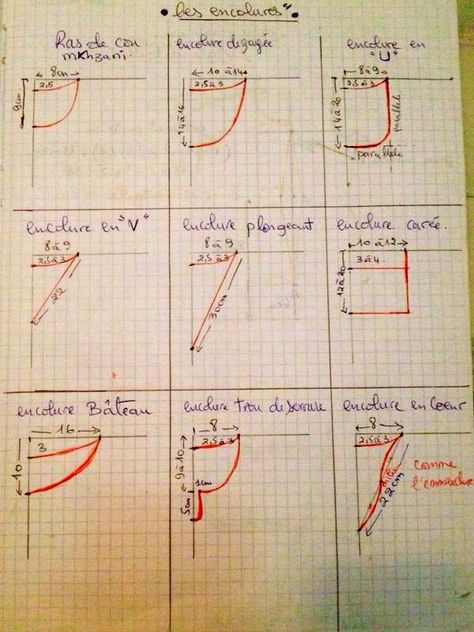 "les encolures"
Ras de cou
mkhzani.
8cm
2,5
9cm
encolure degagée
10 à 14
2,5 à 3
14 à 16
encolure en
"U"
8 à 9
2,5 à 3
14 à 20
parallèle
parallèle
encolure en "V"
8 à 9
2,5 à 3
22
encolure plongeant
8 à 9
2,5 à 3
30cm
encolure carée.
10 à 12
3 à 4
12 à 20
encolure Bâteau
16
3
10
encolure Trou de serrure
8
2,5 à 3
9 à 10
1cm
5cm
encolure en Cœur
8
2,5 à 3
22cm
comme
l'emmanchure